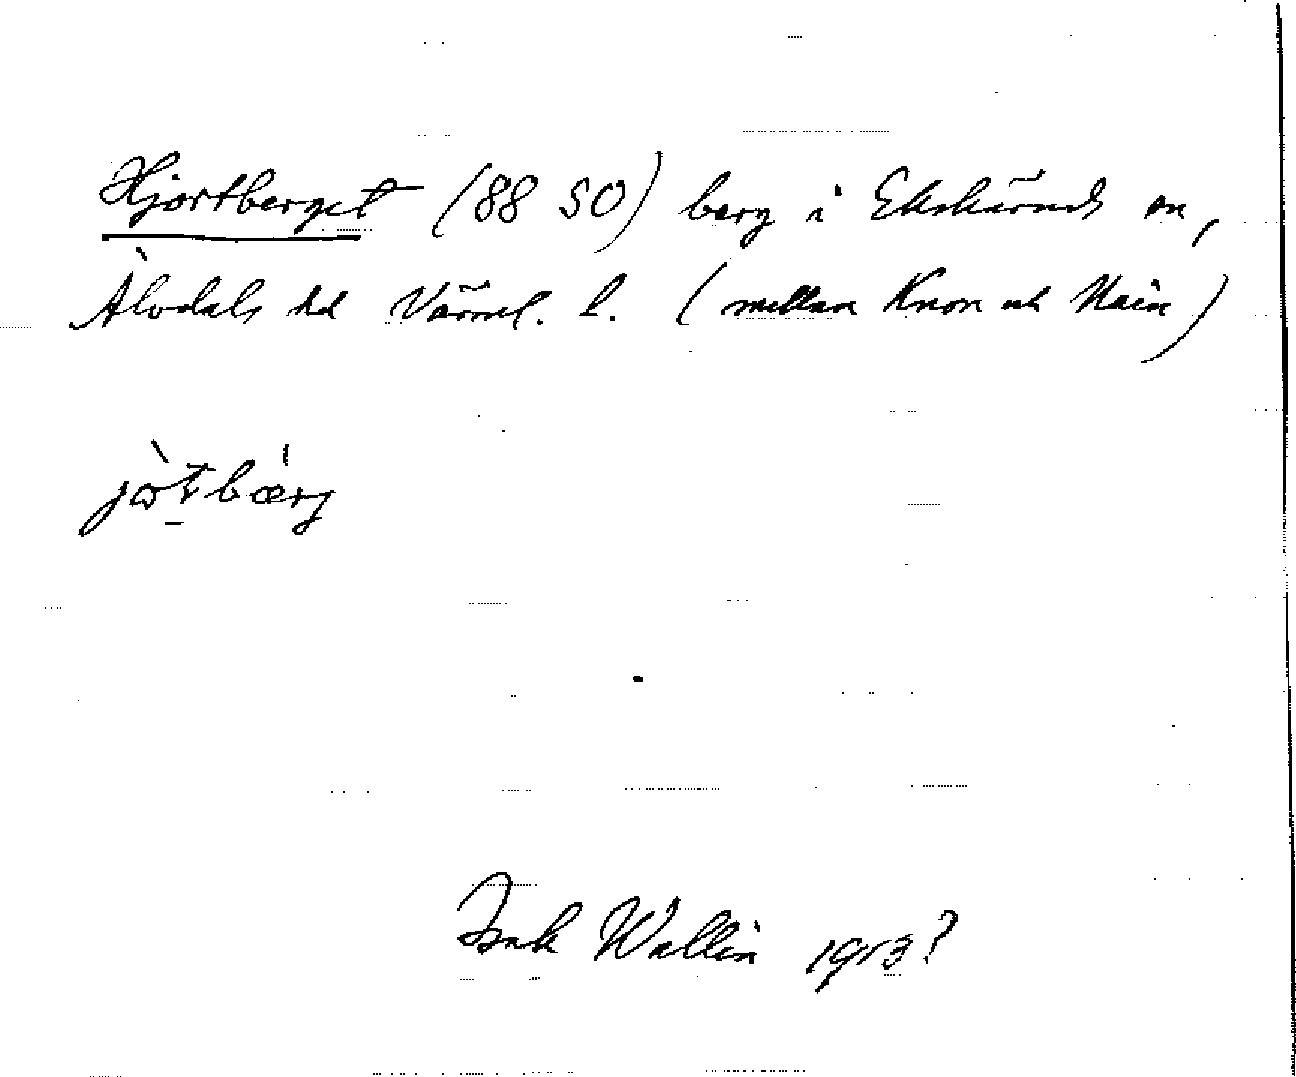 Hjortberget (88 SO) berg i Ekshärads sn,
Älvdals hd Värml. l. (mellan Knon och Näin)
jòt̠bærj
Isak Wallin 1913?